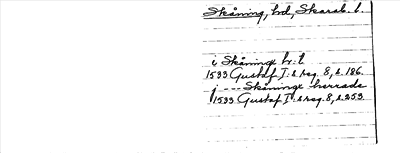 Skåning, hd, Skarab. l.
i Skåninge hr:t
1533 Gustaf I:s reg. 8, s. 186.
j ---- Skåninge herrade
1533 Gustaf I:s reg. 8, s. 253